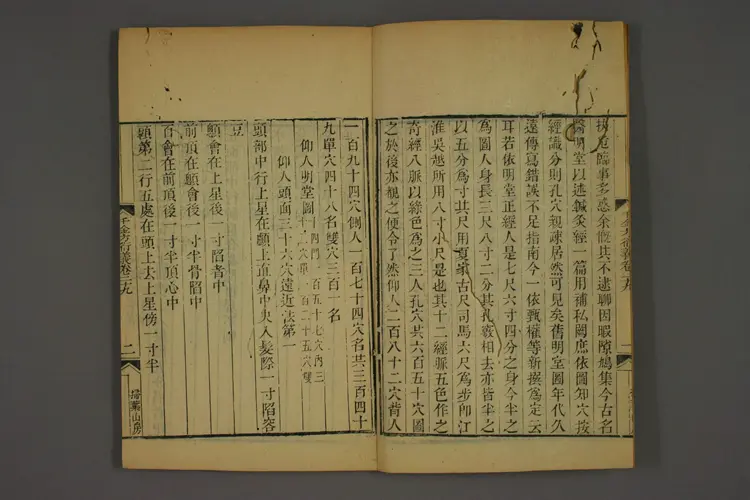 損危臨事多惑余慨其不逮聊因暇隙鳩集今古名
醫明堂以述鍼灸經一篇用補私闕庶依圖知穴按
經識分則孔穴親疎居然可見矣舊明堂圖年代久
遠傳寫錯誤不足指南今一依甄權等新撰爲定云
耳若依明堂正經人是七尺六寸四分之身今半之
爲圖人身長三尺八寸二分其孔竅相去亦皆半之
以五分爲寸其尺用夏家古尺司馬六尺爲步即江
淮吳越所用八寸小尺是也其十二經脈五色作之
奇經八脈以綠色爲之三人孔穴共六百五十穴圖
之於後亦覩之便令了然仰人二百八十二穴背人
一百九十四穴側人一百七十四穴名共三百四十
九單穴四十八名雙穴三百一名
仰人明堂圖
仰人頭面三十六穴遠近法第一
頭部中行上星在顱上直鼻中央入髮際一寸陷容
豆
顖會在上星後一寸陷者中
前頂在顖會後一寸半骨陷中
百會在前頂後一寸半頂心中
頭第二行五處在頭上去上星傍一寸半
千金方衍義卷二十九
二
掃葉山房